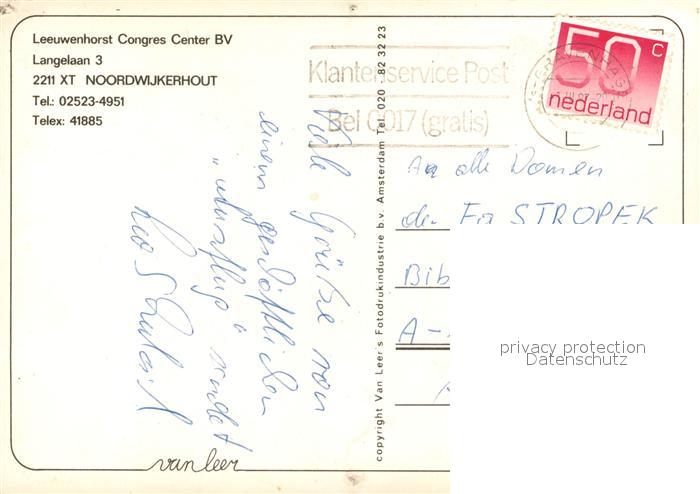 Leeuwenhorst Congres Center BV
Langelaan 3
2211 XT NOORDWIJKERHOUT
Tel.: 02523-4951
Telex: 41885
Klantenservice Post
Bel 0017 (gratis)
50 c
nederland
copyright Van Leer's Fotodrukindustrie b.v. Amsterdam Tel. 020 - 82 32 23
Viele Grüße von
einem geschäftlichen
"Ausflug" sendet
An alle Damen
der Fa STROPEK
Bib
A-
van leer
privacy protection
Datenschutz